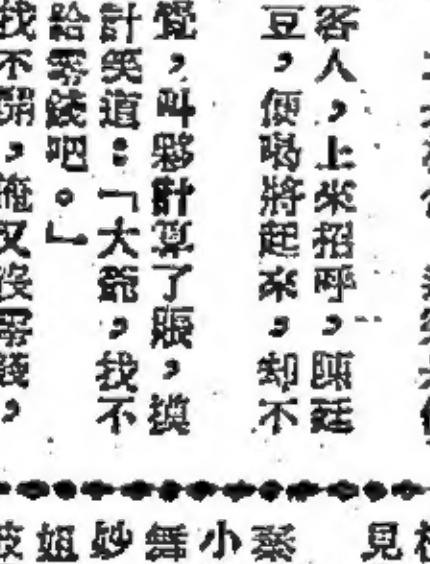 客人，上來招呼，陳廷
豆，便喝將起來，却不
覺，叫夥計算了賬，摸
計笑道：「大爺，我不
給零錢吧。」
我不開，俺又沒零錢，
見
蔡
小舞妙姐